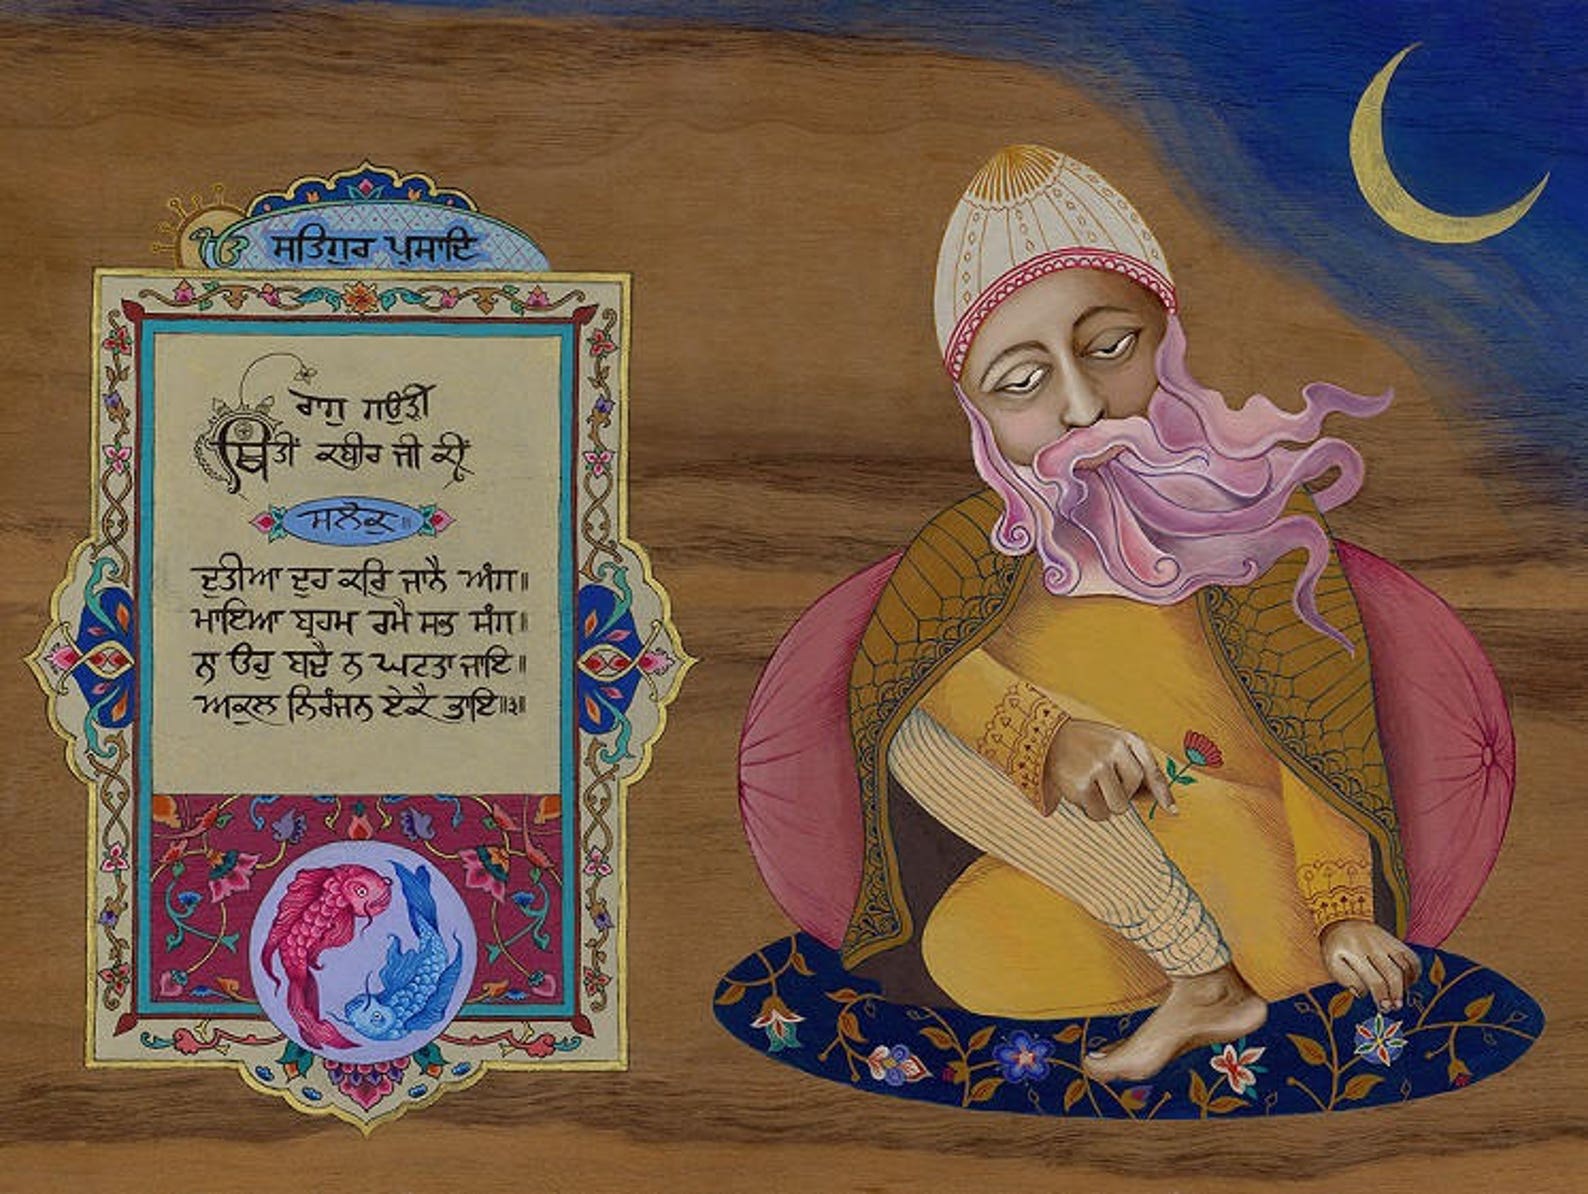 ੴ ਸਤਿਗੁਰ ਪ੍ਰਸਾਦਿ
ਰਾਗੁ ਗਉੜੀ
ਥਿਤੀਂ ਕਬੀਰ ਜੀ ਕੀਂ
ਸਲੋਕੁ॥
ਦੁਤੀਆ ਦੁਹ ਕਰਿ ਜਾਨੈ ਅੰਗ॥
ਮਾਇਆ ਬ੍ਰਹਮ ਰਮੈ ਸਭ ਸੰਗ॥
ਨਾ ਓਹੁ ਬਢੈ ਨ ਘਟਤਾ ਜਾਇ॥
ਅਕੁਲ ਨਿਰੰਜਨ ਏਕੈ ਭਾਇ॥੩॥